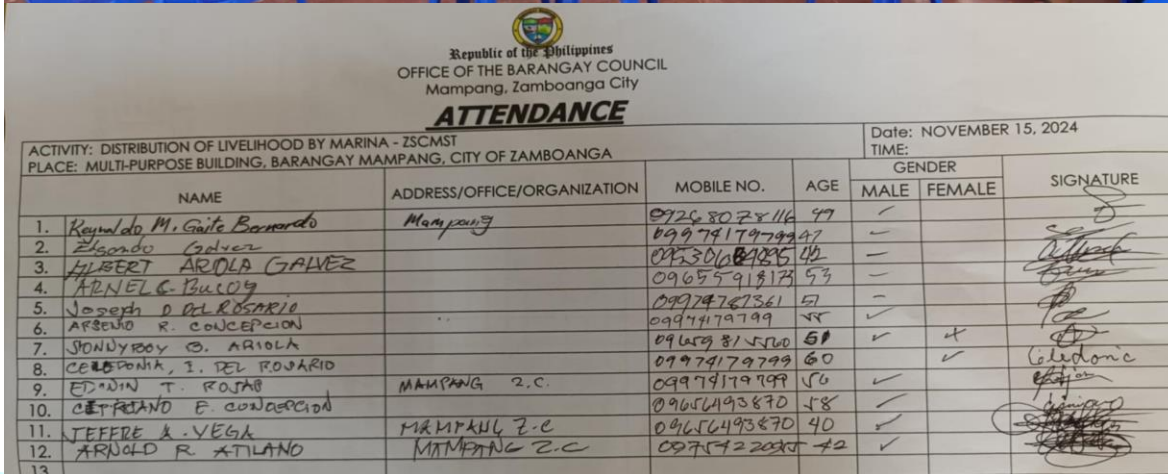 Republic of the Philippines
OFFICE OF THE BARANGAY COUNCIL
Mampang, Zamboanga City
ATTENDANCE
ACTIVITY: DISTRIBUTION OF LIVELIHOOD BY MARINA - ZSCMST
PLACE: MULTI-PURPOSE BUILDING, BARANGAY MAMPANG, CITY OF ZAMBOANGA
Date: NOVEMBER 15, 2024
TIME:
NAME ADDRESS/OFFICE/ORGANIZATION MOBILE NO. AGE GENDER MALE FEMALE SIGNATURE
1. Reynaldo M. Gaite Bernardo Mampang 09268078116 49
2. Galvez 09974179799 47
3. ALBERT ARIOLA GALVEZ 42
4. ARNEL 53
5. Joseph D DEL ROSARIO 09974787361 51
6. ARSENIO R. CONCEPCION 09974179799 55
7. SONNYBOY B. ARIOLA 51
8. CELEDONIA, I. DEL ROSARIO 09974179799 60 Celedonia
9. EDWIN T. ROJAS MAMPANG Z.C. 09974179799 56
10. CIPRIANO E. CONCEPCION 09656493870 58
11. JEFFRE A. VEGA MAMPANG Z.C 09656493870 40
12. ARNOLD R ATILANO MAMPANG Z.C 42
13